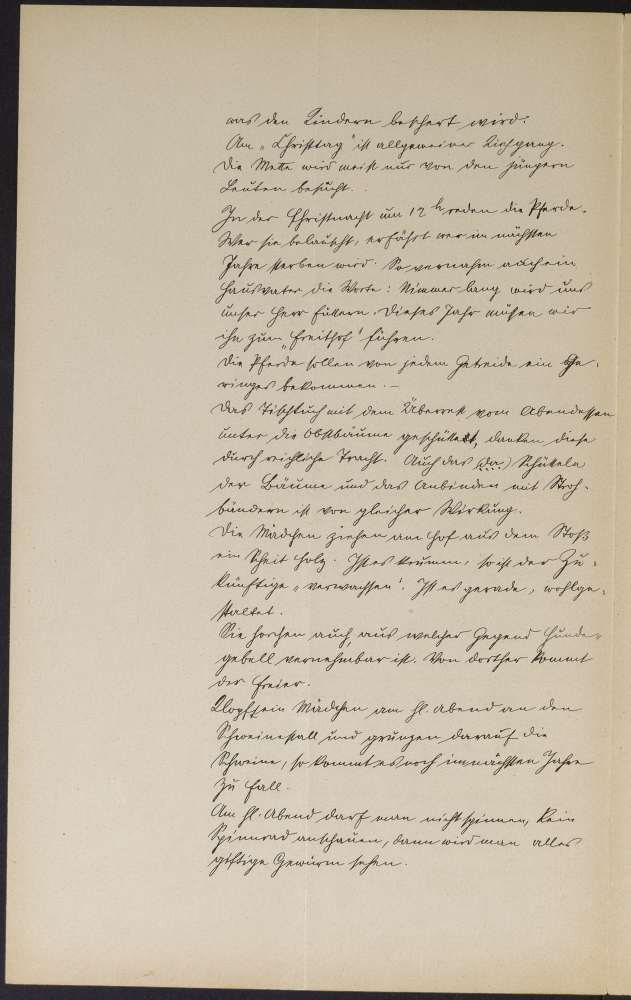 was den Kindern beschert wird.
Am „Christtag" ist allgemeiner Kirchgang.
Die Mette wird meist nur von den jüngern
Leuten besucht.
In der Christnacht um 12 h reden die Pferde.
Wer sie belauscht, erfährt wer im nächsten
Jahre sterben wird. So vernahm auch ein
Hausvater die Worte: Nimmer lang wird uns
unser Herr füttern. Dieses Jahr müsen wir
ihn zum „Freithof" führen.
Die Pferde sollen von jedem Getreide ein Ge-
ringes bekommen. –
Das Tischtuch mit dem Überrest vom Abendessen
unter die Obstbäume geschüttelt, danken diese
durch reichliche Tracht. Auch das (da.) Schütteln
der Bäume und das Anbinden mit Stroh-
bändern ist von gleicher Wirkung.
Die Mädchen ziehen am Hof aus dem Stoß
ein Scheit Holz. Ist es krumm, so ist der Zu-
künftige „verwachsen". Ist es gerade, wohlge-
staltet.
Sie horchen auch, aus welcher Gegend Hunde-
gebell vernehmbar ist. Von dorther kommt
der Freier.
Klopft ein Mädchen am hl. Abend an den
Schweinestall und grunzen darauf die
Schweine, so kommt es noch im nächsten Jahre
zu Fall.
Am hl. Abend darf man nicht spinnen, kein
Spinnrad anschauen, dann wird man alles
giftige Gewürm sehen.